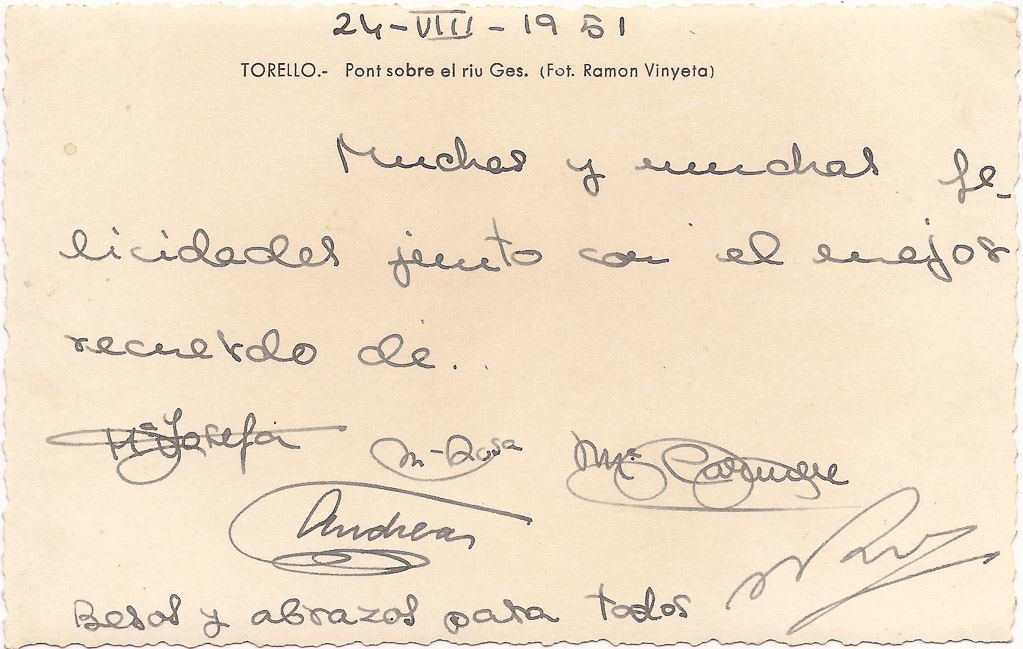 24-VIII-1951
TORELLO.- Pont sobre el riu Ges. (Fot. Ramon Vinyeta)
Muchas y muchas fe-
licidades junto con el mejor
recuerdo de..
Mª Josefa Mª Rosa Mª Carmen
Andrea
Besos y abrazos para todos